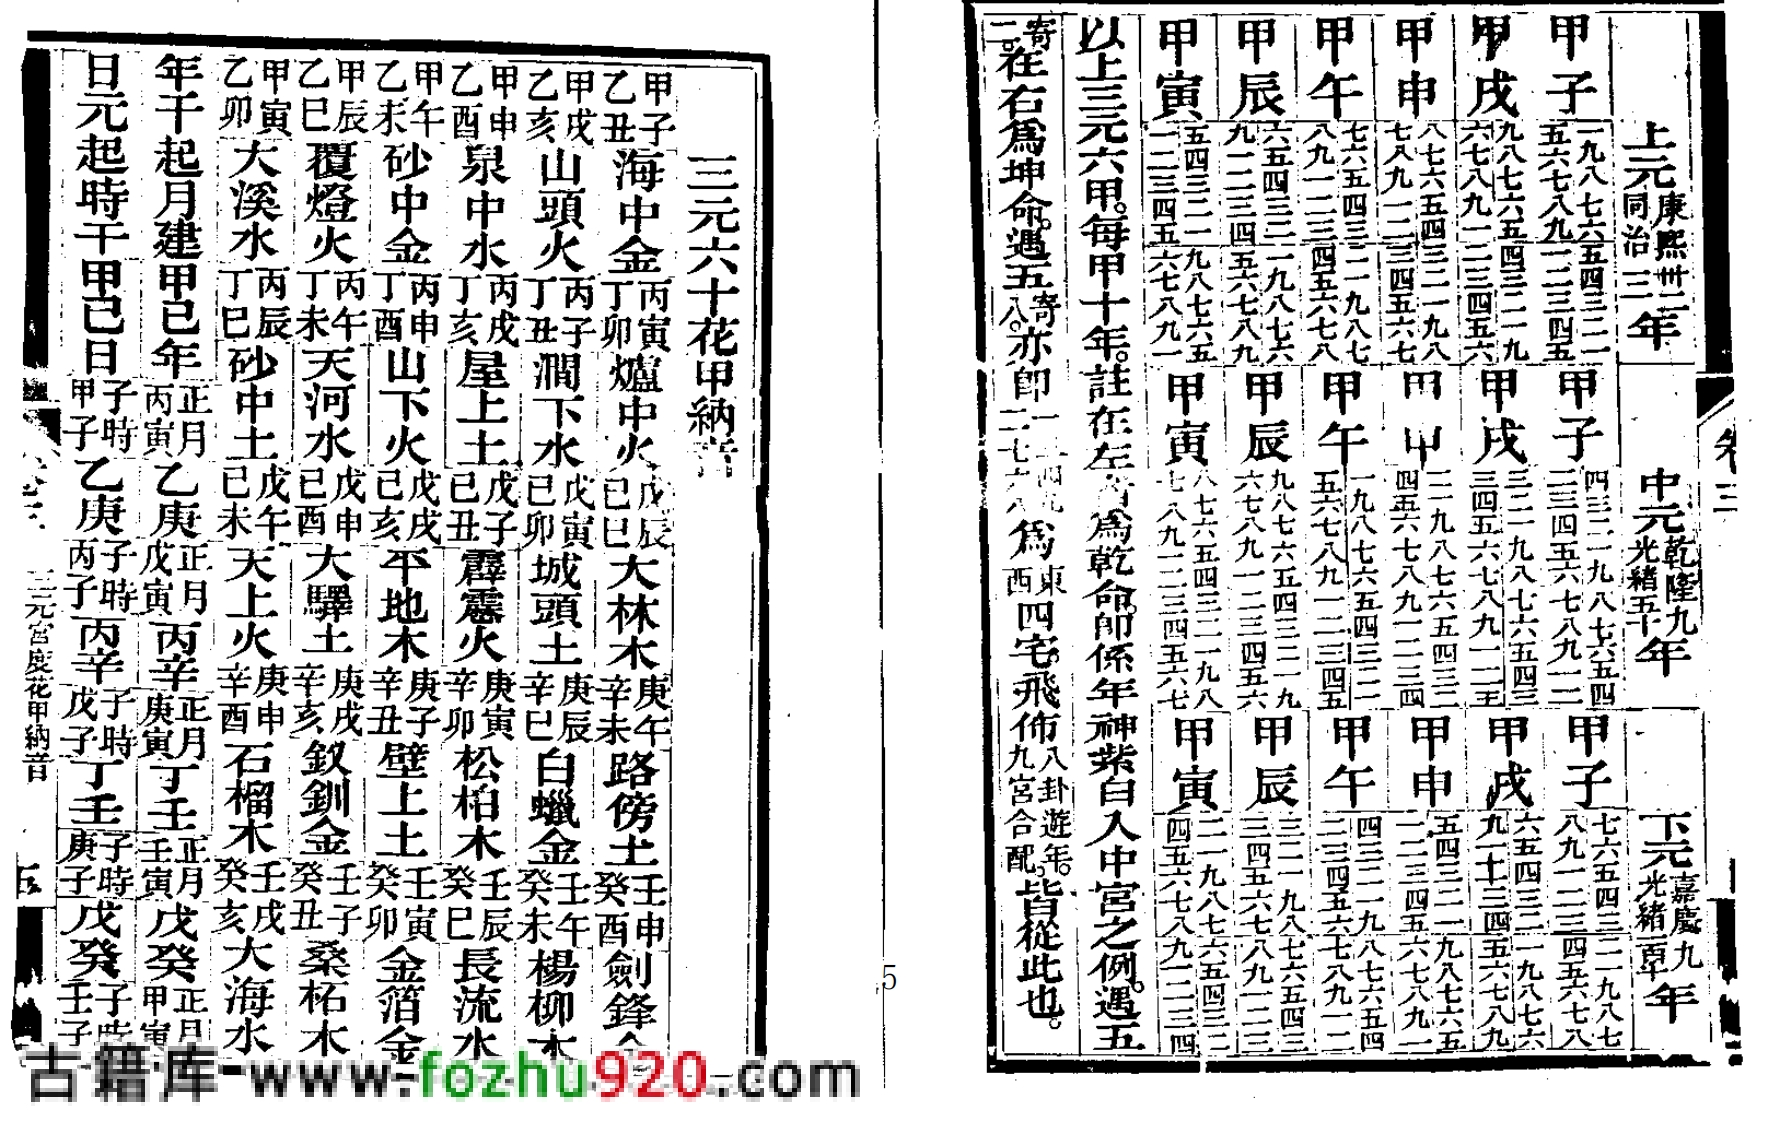 卷三
上元 康熙卅二 同治三 年 中元 乾隆九 光緒五十 年 下元 嘉慶九 光緒百 年
甲子 一九八七六五四三二一 五六七八九一二三四五 甲子 四三二一九八七六五四 二三四五六七八九一二 甲子 七六五四三二一九八七 八九一二三四五六七八
甲戌 九八七六五四三二一九 六七八九一二三四五六 甲戌 三二一九八七六五四三 三四五六七八九一二三 甲戌 六五四三二一九八七六 九一二三四五六七八九
甲申 八七六五四三二一九八 七八九一二三四五六七 甲申 二一九八七六五四三二 四五六七八九一二三四 甲申 五四三二一九八七六五 一二三四五六七八九一
甲午 七六五四三二一九八七 八九一二三四五六七八 甲午 一九八七六五四三二一 五六七八九一二三四五 甲午 四三二一九八七六五四 二三四五六七八九一二
甲辰 六五四三二一九八七六 九一二三四五六七八九 甲辰 九八七六五四三二一九 六七八九一二三四五六 甲辰 三二一九八七六五四三 三四五六七八九一二三
甲寅 五四三二一九八七六五 一二三四五六七八九一 甲寅 八七六五四三二一九八 七八九一二三四五六七 甲寅 二一九八七六五四三二 四五六七八九一二三四
以上三元六甲。每甲十年。註在左者爲乾命。即係年神紫白入中宮之例。遇五
寄二。在右爲坤命。遇五寄八。亦即一三四九二七六八爲東西四宅。飛佈八卦遊年。九宮合配。皆從此也。
5
三元六十花甲納音
甲子乙丑海中金 丙寅丁卯爐中火 戊辰己巳大林木 庚午辛未路傍土 壬申癸酉劍鋒金
甲戌乙亥山頭火 丙子丁丑澗下水 戊寅己卯城頭土 庚辰辛巳白蠟金 壬午癸未楊柳木
甲申乙酉泉中水 丙戌丁亥屋上土 戊子己丑霹靂火 庚寅辛卯松柏木 壬辰癸巳長流水
甲午乙未砂中金 丙申丁酉山下火 戊戌己亥平地木 庚子辛丑壁上土 壬寅癸卯金箔金
甲辰乙巳覆燈火 丙午丁未天河水 戊申己酉大驛土 庚戌辛亥釵釧金 壬子癸丑桑柘木
甲寅乙卯大溪水 丙辰丁巳砂中土 戊午己未天上火 庚申辛酉石榴木 壬戌癸亥大海水
年干起月建甲己年正月丙寅乙庚正月戊寅丙辛正月庚寅丁壬正月壬寅戊癸正月甲寅
日元起時干甲己日子時甲子乙庚子時丙子丙辛子時戊子丁壬子時庚子戊癸子時壬子
三元宮度花甲納音 五
古籍库-www.fozhu920.com